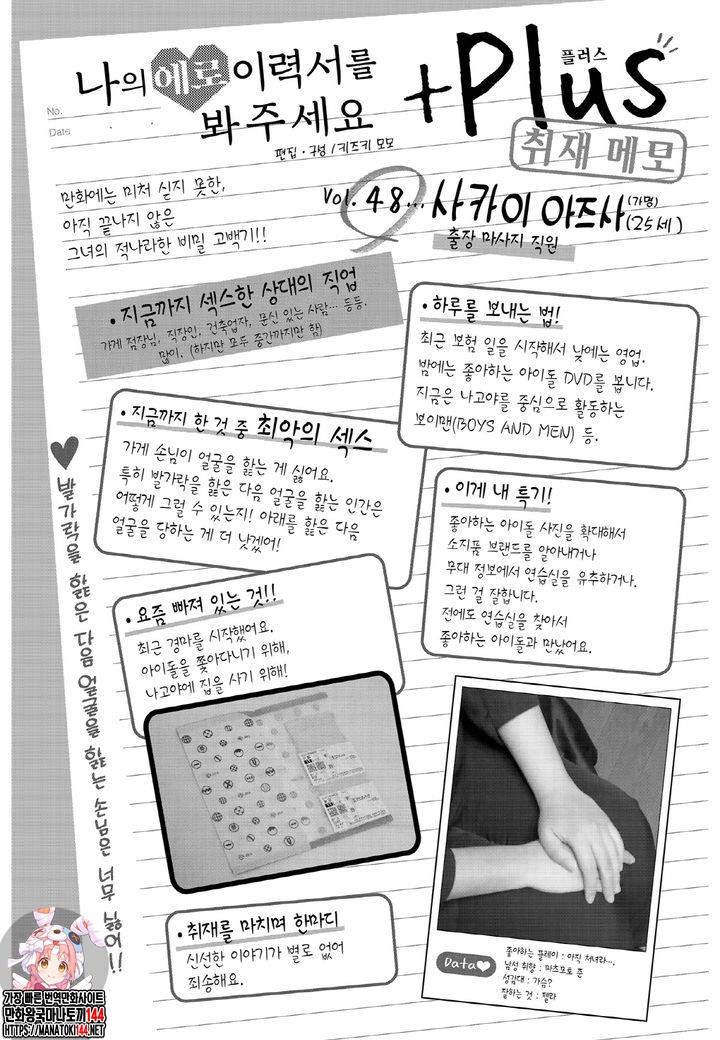 No.
Date
나의 에로 이력서를
봐주세요
+Plus
플러스
취재 메모
편집·구성/키즈키 모모
만화에는 미처 싣지 못한,
아직 끝나지 않은
그녀의 적나라한 비밀 고백기!!
Vol. 48... 사카이 아즈사 (가명)
(25세)
출장 마사지 직원
•지금까지 섹스한 상대의 직업
가게 점장님, 직장인, 건축업자, 문신 있는 사람... 등등.
많이. (하지만 모두 중간까지만 함)
•하루를 보내는 법!
최근 보험 일을 시작해서 낮에는 영업.
밤에는 좋아하는 아이돌 DVD를 봅니다.
지금은 나고야를 중심으로 활동하는
보이맨(BOYS AND MEN) 등.
•지금까지 한 것 중 최악의 섹스
가게 손님이 얼굴을 핥는 게 싫어요.
특히 발가락을 핥은 다음 얼굴을 핥는 인간은
어떻게 그럴 수 있는지! 아래를 핥은 다음
얼굴을 당하는 게 더 낫겠어!
•이게 내 특기!
좋아하는 아이돌 사진을 확대해서
소지품 브랜드를 알아내거나
무대 정보에서 연습실을 유추하거나.
그런 걸 잘합니다.
전에도 연습실을 찾아서
좋아하는 아이돌과 만났어요.
•요즘 빠져 있는 것!!
최근 경마를 시작했어요.
아이돌을 쫓아다니기 위해,
나고야에 집을 사기 위해!
♥발가락을 핥은 다음 얼굴을 핥는 손님은 너무 싫어!!
•취재를 마치며 한마디
신선한 이야기가 별로 없어
죄송해요.
Data♥
좋아하는 플레이 : 아직 처녀라...
남성 취향 : 마츠모토 준
성감대 : 가슴?
잘하는 것 : 펠라
가장 빠른 번역만화사이트
만화왕국마나토끼144
HTTPS://MANATOKI144.NET